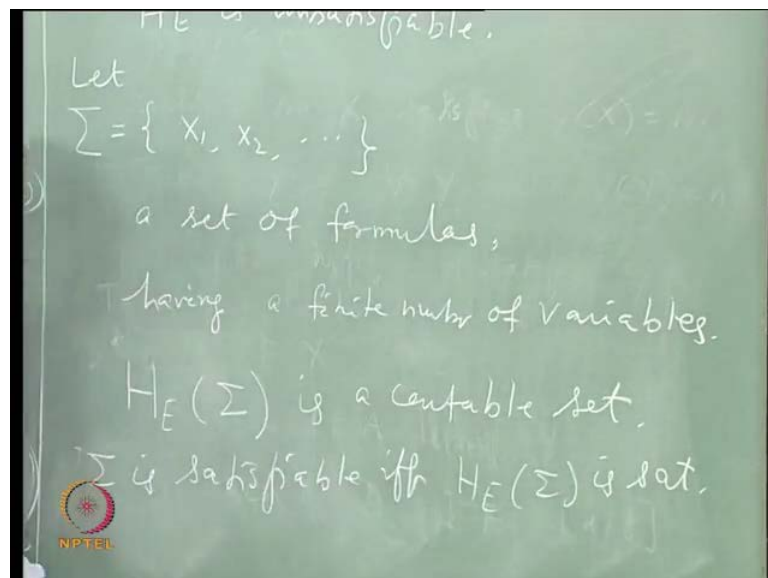 HE is unsatisfiable.
Let
Σ = { X₁, X₂, ... }
a set of formulas,
having a finite numbr of variables.
H_E (Σ) is a contable set.
Σ is satisfiable iff H_E (Σ) is sat.
NPTEL